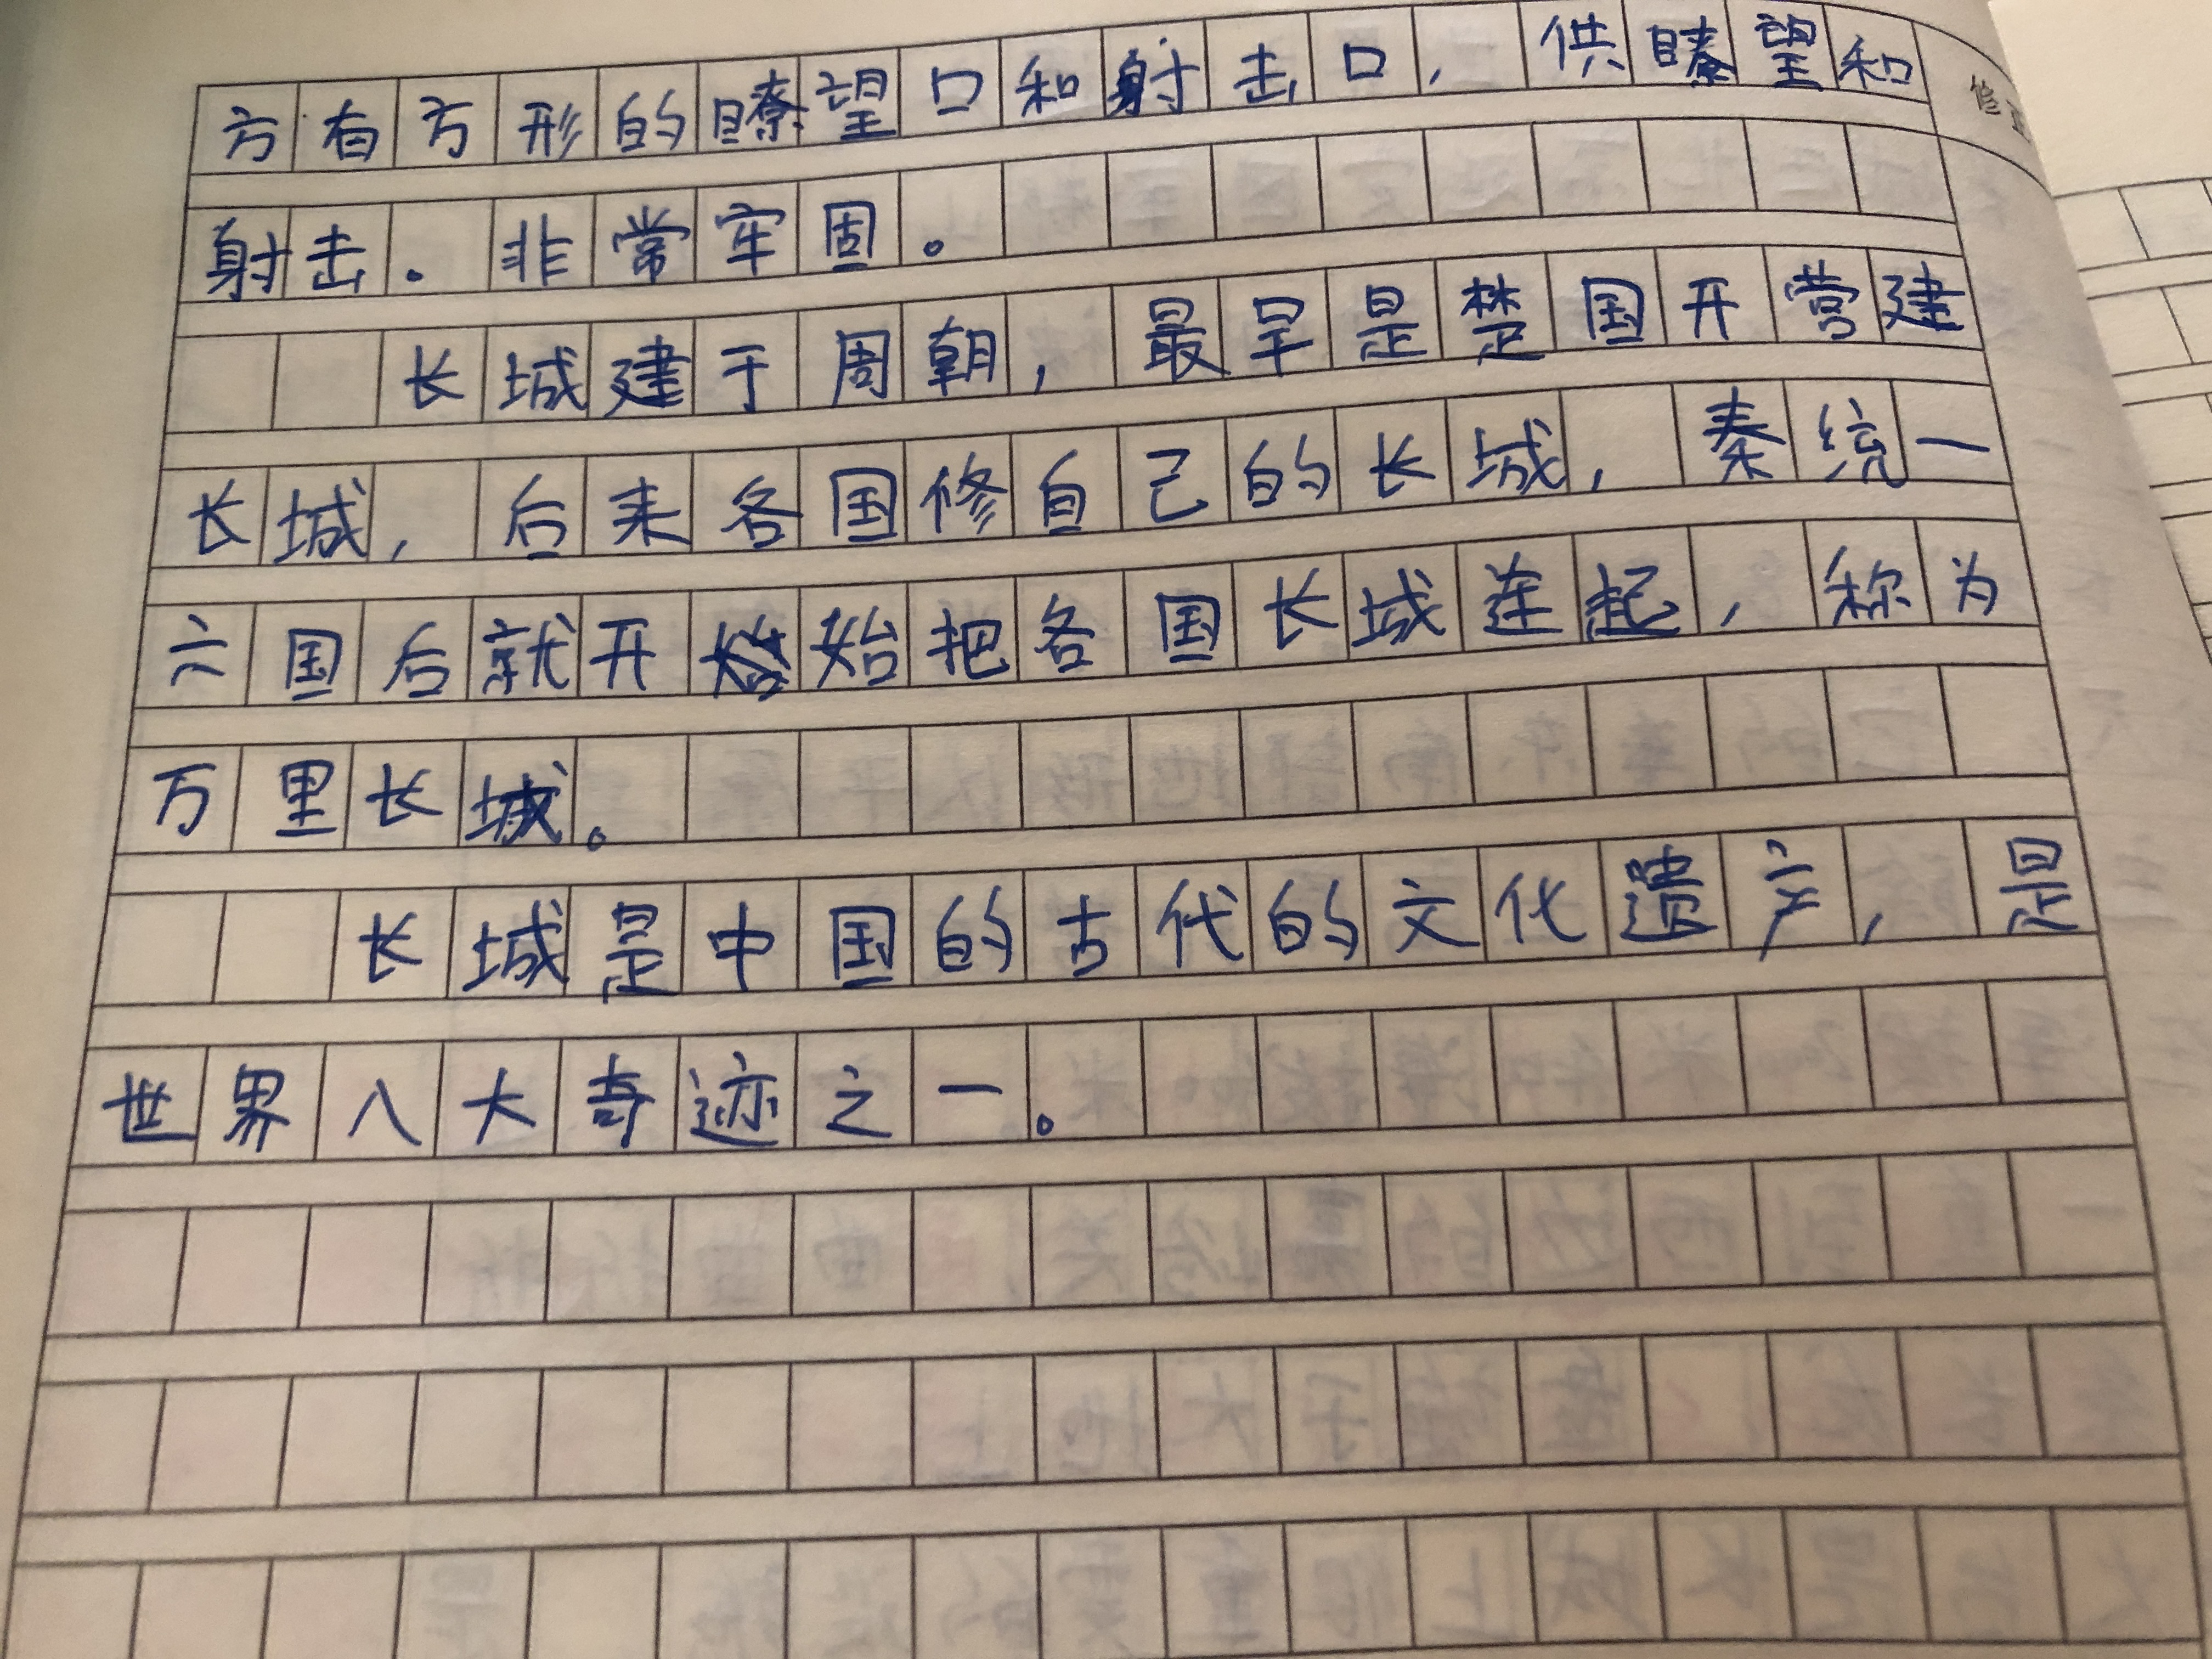 方有方形的瞭望口和射击口，供瞭望和
射击。非常牢固。
长城建于周朝，最早是楚国开营建
长城，后来各国修自己的长城，秦统一
六国后就开始把各国长城连起，称为
万里长城。
长城是中国的古代的文化遗产，是
世界八大奇迹之一。